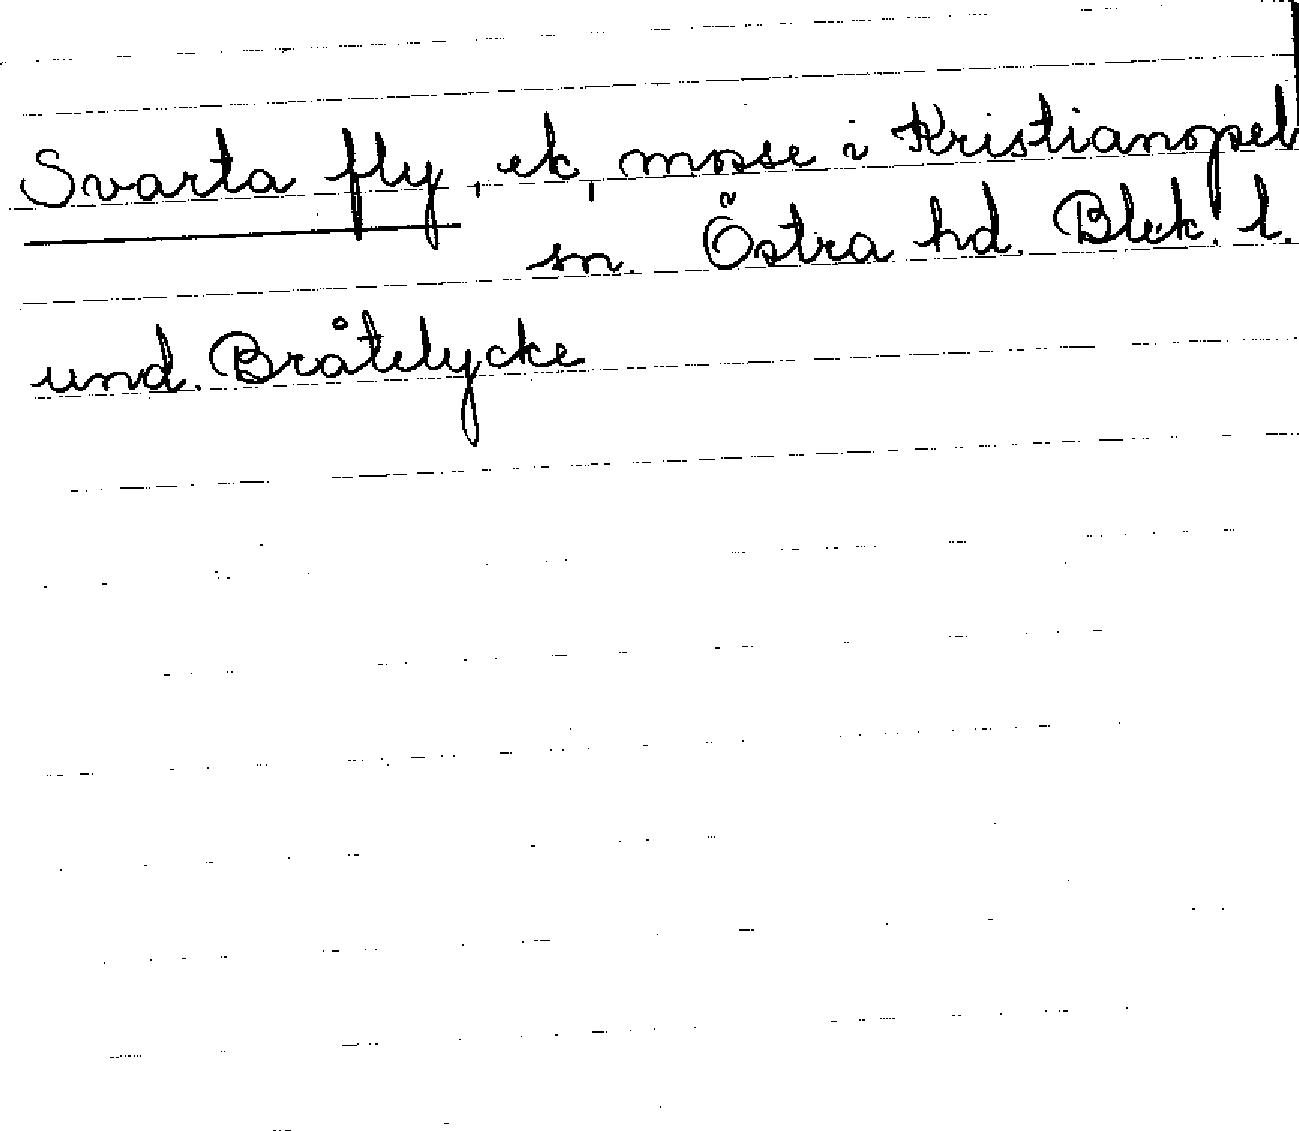 Svarta fly, ek, mosse i Kristianopel
sn. Östra hd. Blek. l.
und. Bråtelycke